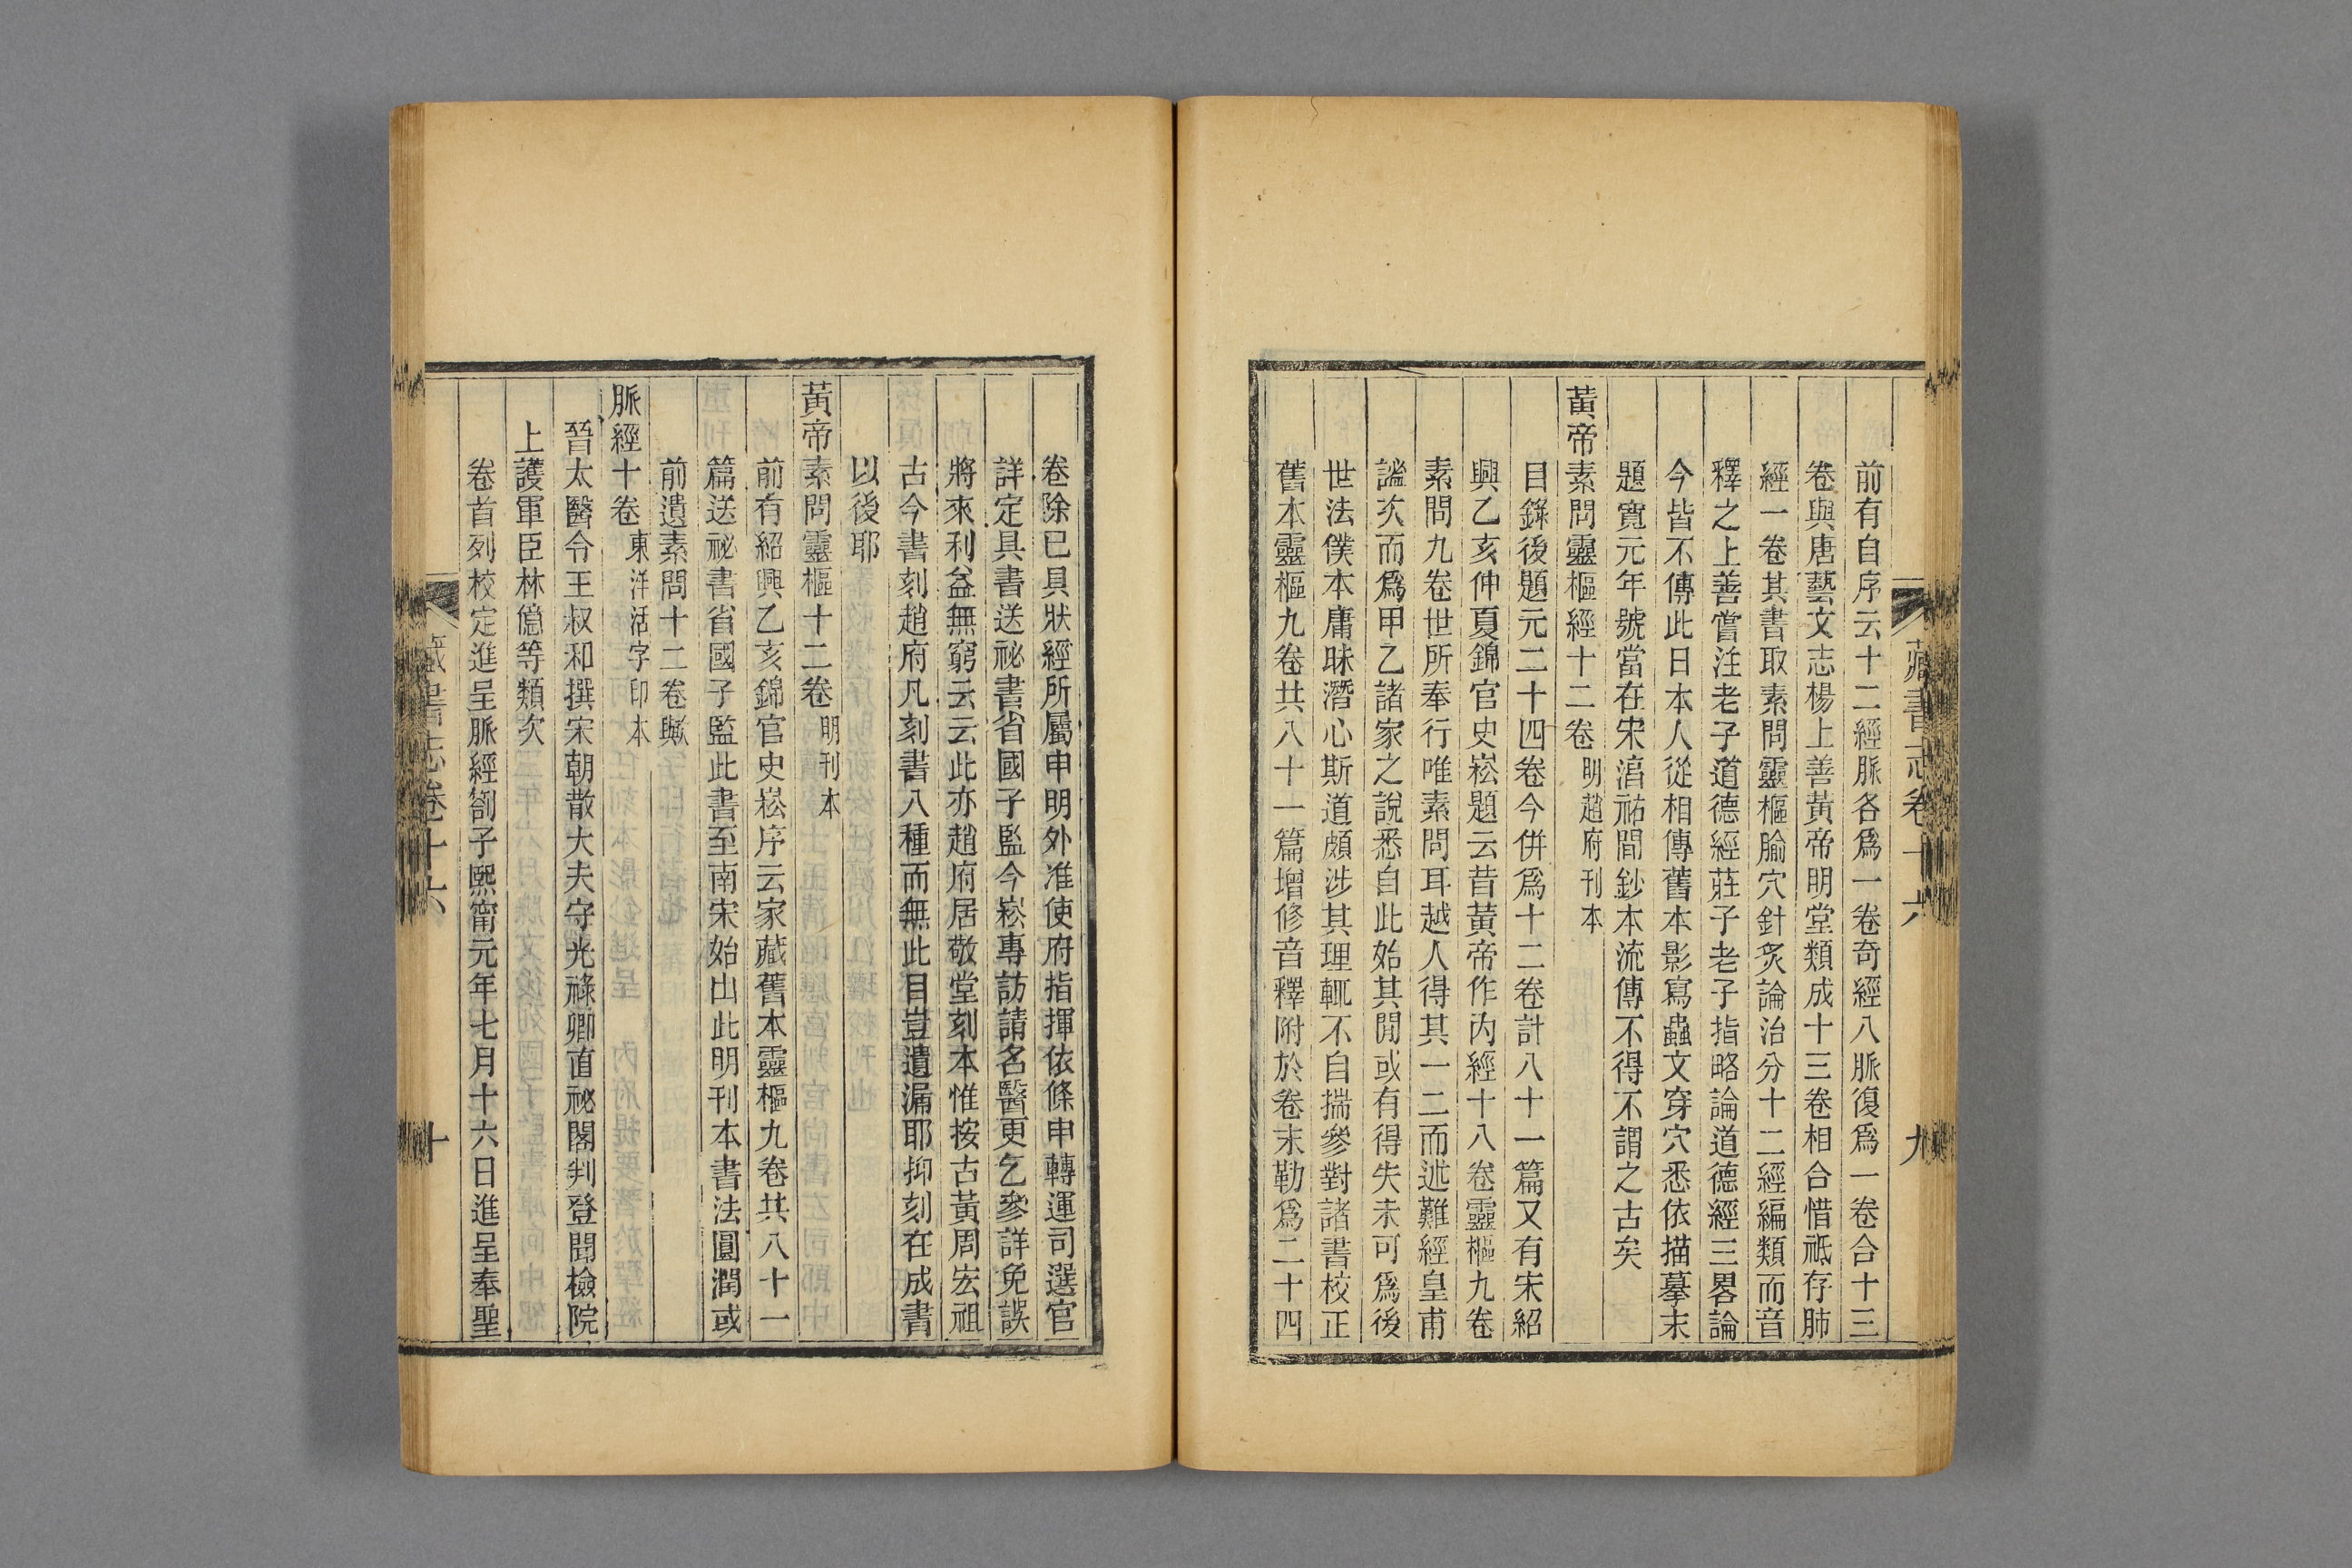 藏書志卷十六
九
前有自序云十二經脈各爲一卷奇經八脈復爲一卷合十三
卷與唐藝文志楊上善黃帝明堂類成十三卷相合惜祗存肺
經一卷其書取素問靈樞腧穴針炙論治分十二經編類而音
釋之上善嘗注老子道德經莊子老子指略論道德經三畧論
今皆不傳此日本人從相傳舊本影寫蟲文穿穴悉依描摹末
題寬元年號當在宋湻祐間鈔本流傳不得不謂之古矣
黃帝素問靈樞經十二卷 明趙府刊本
目錄後題元二十四卷今併爲十二卷計八十一篇又有宋紹
興乙亥仲夏錦官史崧題云昔黃帝作內經十八卷靈樞九卷
素問九卷世所奉行唯素問耳越人得其一二而述難經皇甫
謐次而爲甲乙諸家之說悉自此始其閒或有得失未可爲後
世法僕本庸昧潛心斯道頗涉其理輒不自揣參對諸書校正
舊本靈樞九卷共八十一篇增修音釋附於卷末勒爲二十四
卷除已具狀經所屬申明外准使府指揮依條申轉運司選官
詳定具書送祕書省國子監今崧專訪請名醫更乞參詳免誤
將來利益無窮云云此亦趙府居敬堂刻本惟按古黃周宏祖
古今書刻趙府凡刻書八種而無此目豈遺漏耶抑刻在成書
以後耶
黃帝素問靈樞十二卷 明刊本
前有紹興乙亥錦官史崧序云家藏舊本靈樞九卷共八十一
篇送祕書省國子監此書至南宋始出此明刊本書法圓潤或
前遺素問十二卷歟
脈經十卷 東洋活字印本
晉太醫令王叔和撰宋朝散大夫守光祿卿直祕閣判登聞檢院
上護軍臣林億等類次
卷首列校定進呈脈經劄子熙甯元年七月十六日進呈奉聖
藏書志卷十六
十